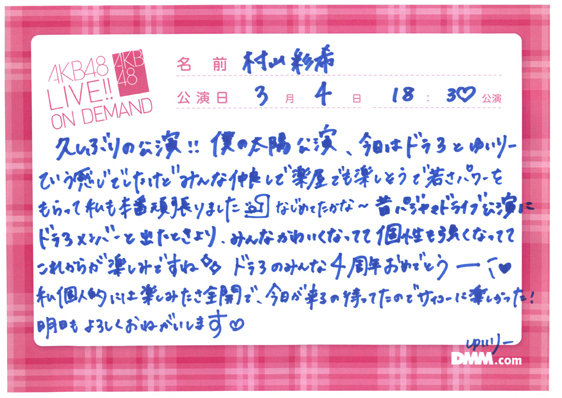 AKB48
LIVE!!
ON DEMAND
AKB
48
名前 村山彩希
公演日 3月4日 18:30公演
久しぶりの公演!! 僕の太陽公演、今日はドラ3とゆいりー
という感じでしたけどみんな仲良しで楽屋でも楽しそうで若さパワーを
もらって私も本番頑張りました なじめてたかな〜 昔パジャマドライブ公演に
ドラ3メンバーと出たときより、みんなかわいくなってて個性も強くなってて
これからが楽しみですね ドラ3のみんな4周年おめでとうー♥
私個人的には楽しみたさ全開で、今日が来るの待ってたのでサイコーに楽しかった!
明日もよろしくおねがいします♡
ゆいりー
DMM.com